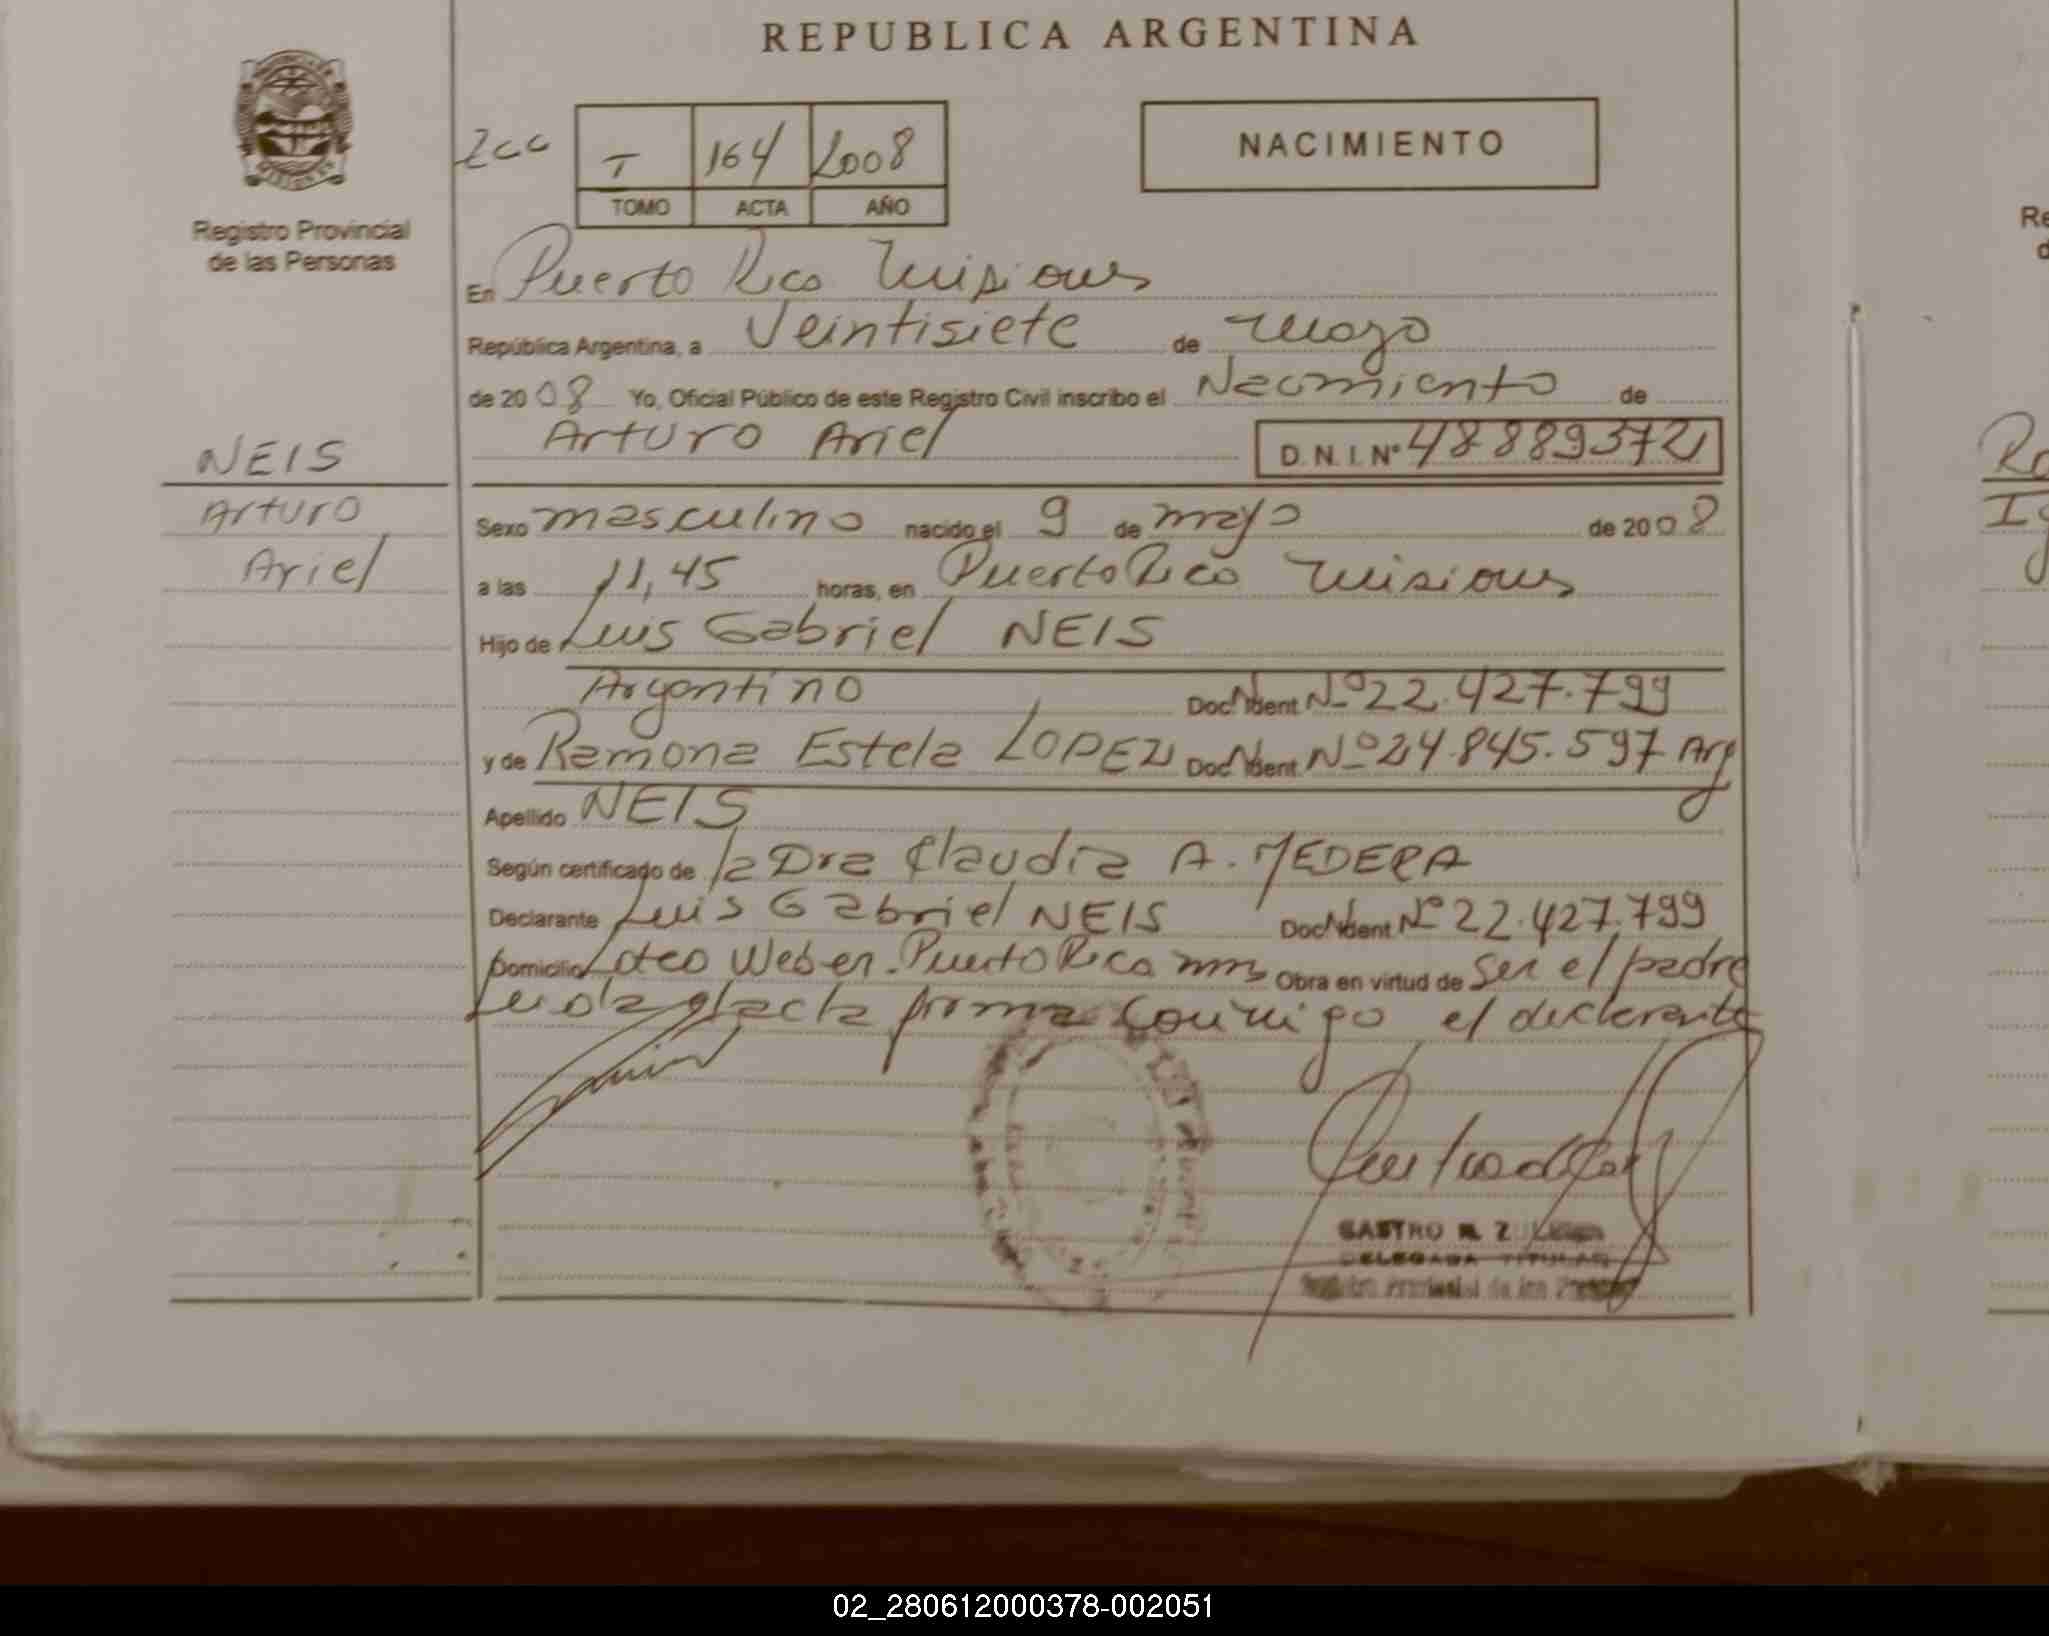 REPUBLICA ARGENTINA
Registro Provincial
de las Personas
T 164 2008
TOMO ACTA AÑO
NACIMIENTO
En Puerto Rico Misiones
República Argentina, a Veintisiete de mayo
de 2008 Yo, Oficial Público de este Registro Civil inscribo el Nacimiento de
Arturo Ariel D.N.I. Nº 48889372
NEIS
Arturo
Ariel
Sexo masculino nacido el 9 de mayo de 2008
a las 11,45 horas, en Puerto Rico Misiones
Hijo de Luis Gabriel NEIS
Argentino Doc. Ident Nº 22.427.799
y de Ramona Estela LOPEZ Doc. Ident Nº 24.845.597 Arg
Apellido NEIS
Según certificado de la Dra Claudia A. MEDERA
Declarante Luis Gabriel NEIS Doc. Ident Nº 22.427.799
Domicilio Loteo Weber. Puerto Rico Mnes Obra en virtud de ser el padre
Leida el acta firma conmigo el declarante
CASTRO M. Z
DELEGADA TITULAR
Registro Provincial de las Personas
02_280612000378-002051